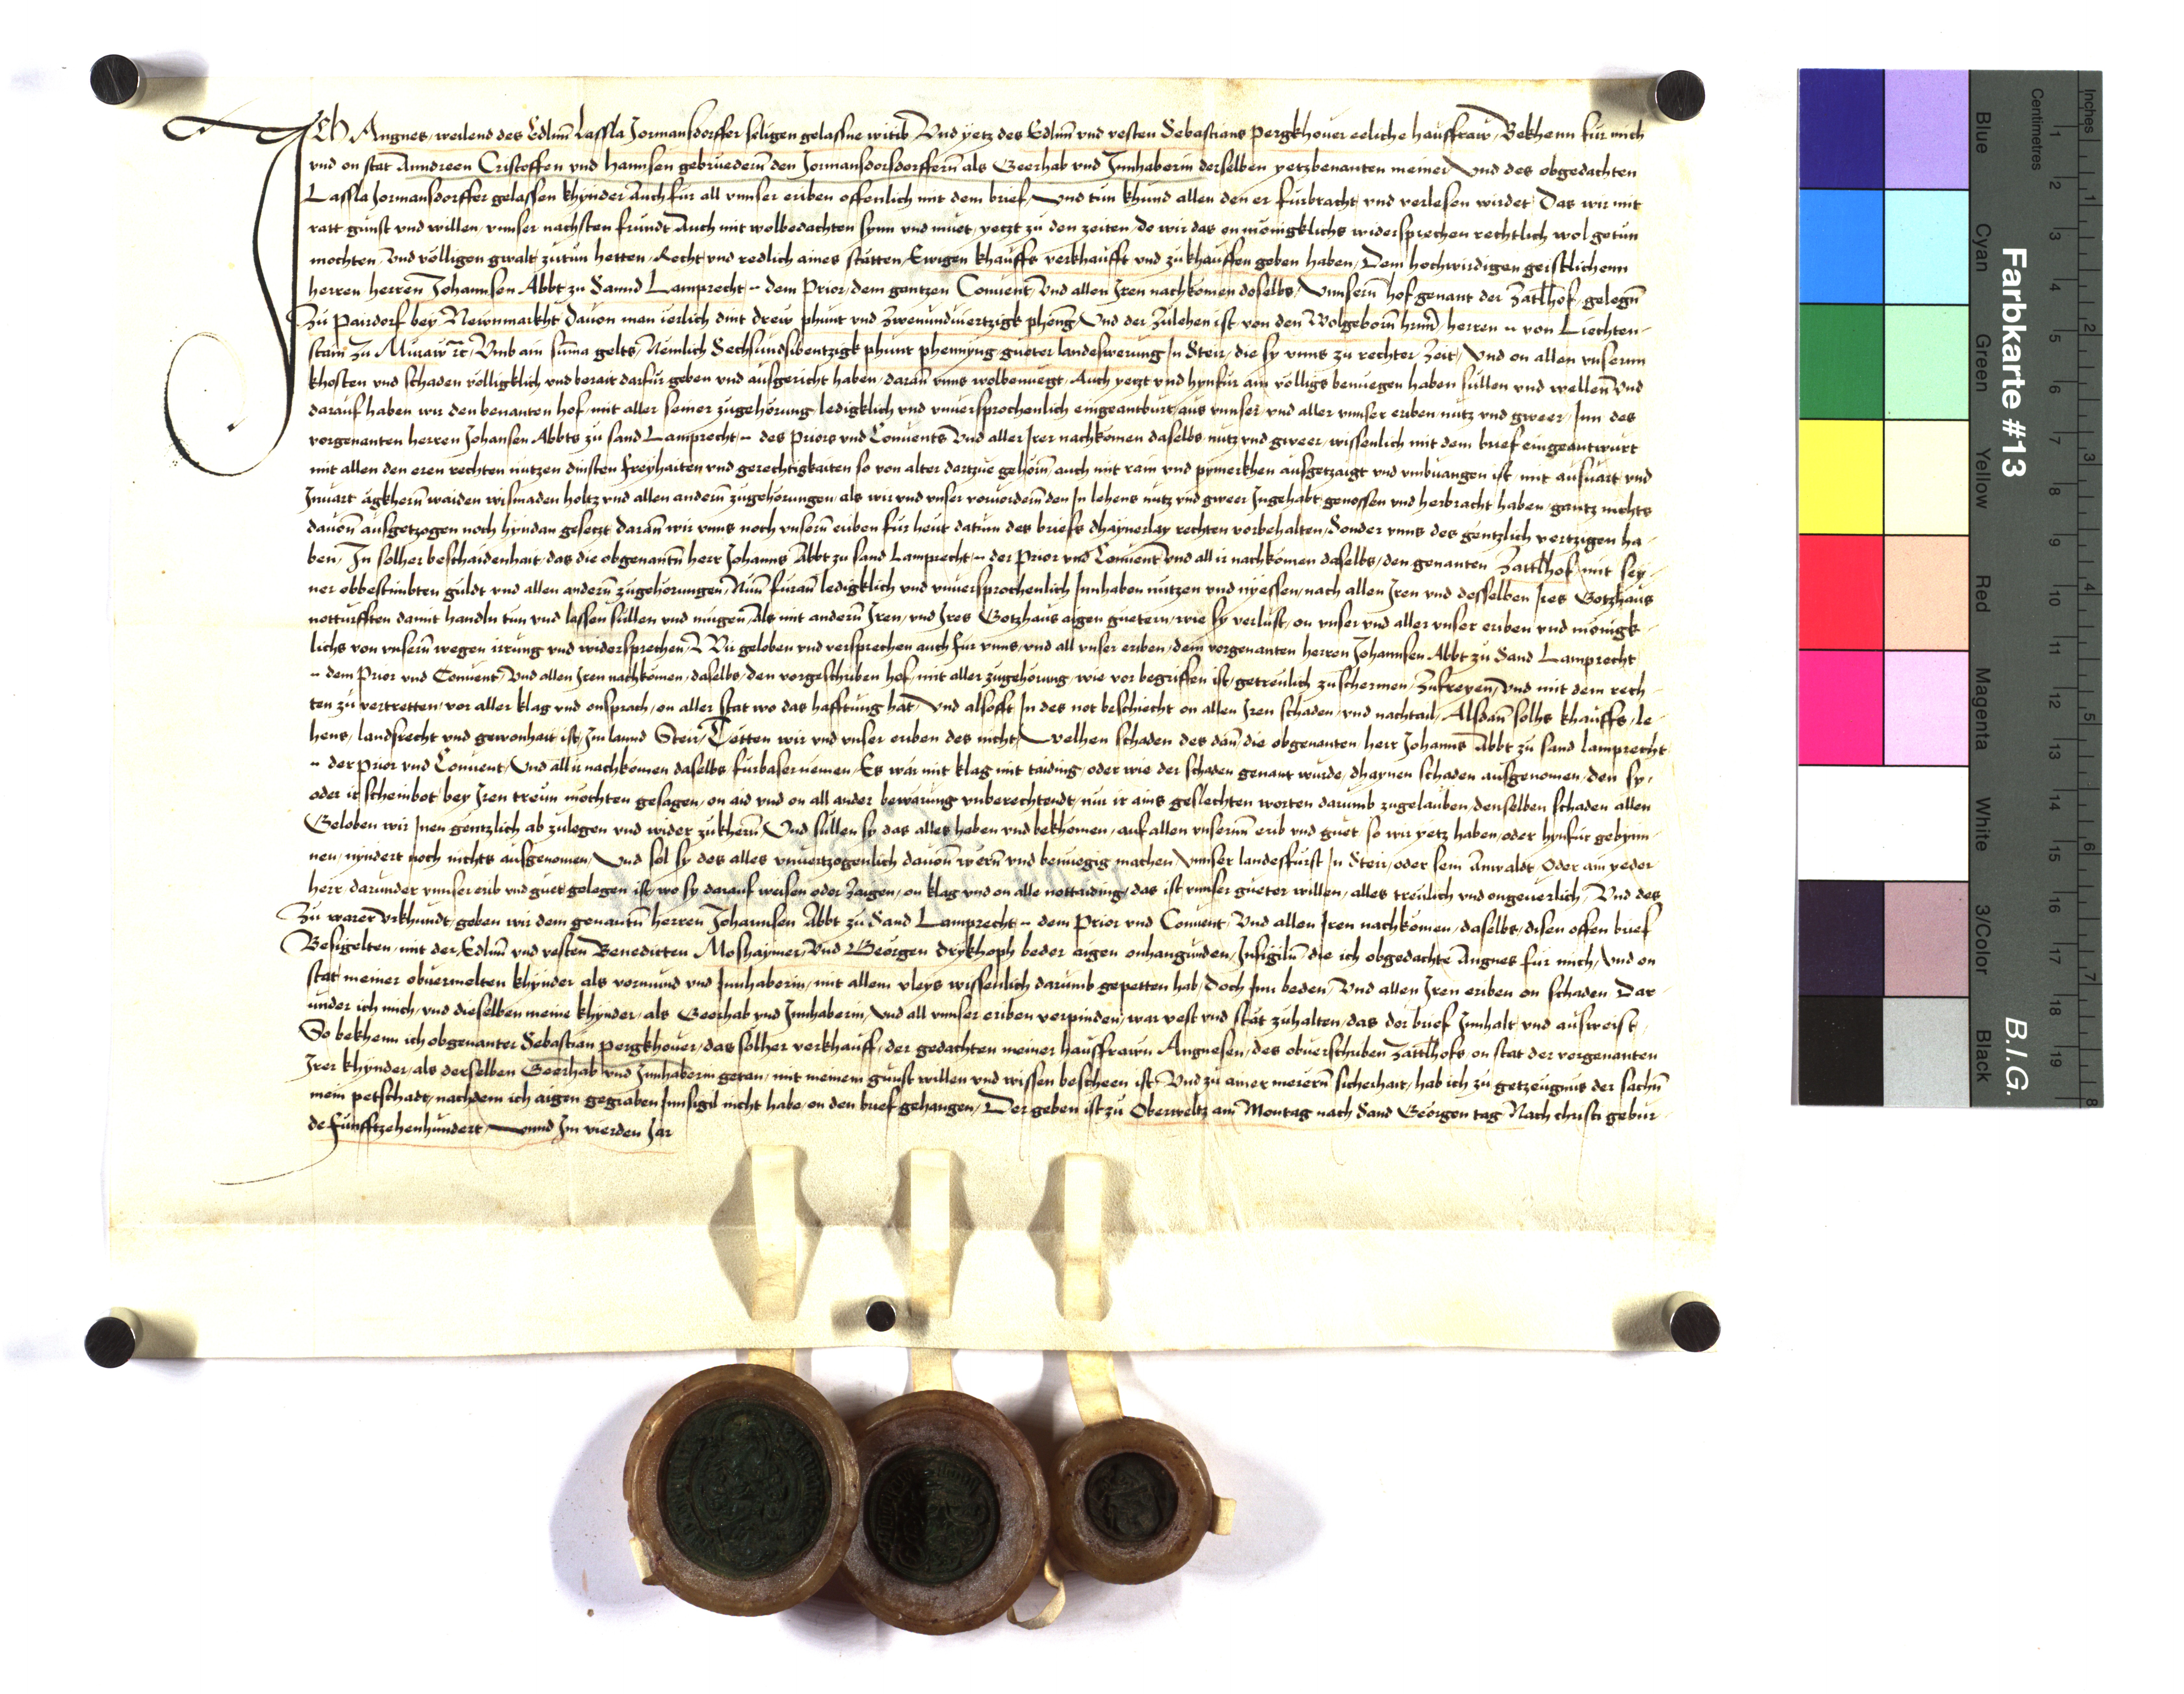 Ich Angnes, weilend des Edlnn Lassla Jormansdorffer seligen gelassne witib Vnd yetz des Edlnn vnd vesten Sebastians pergkhouer eeliche hausfraw, Bekhenn für mich
vnd on stat Anndreen Cristoffen vnd hannsen gebruedernn den Jormansdorsdorffernn als Geerhab vnd Innhaberin derselben yetzbenanten meiner Vnd des obgedachten
Lassla Jormansdorffer gelassen khynder Auch für all vnnser eriben offenlich mit dem brief, Vnd tun khund allen den er fürbracht vnd verlesen wirdet, Das wir mit
ratt gunst vnd willen, vnnser nachsten fründt Auch mit wolbedachten synn vnd muet, yetzt zu den zeiten, do wir das on mönigklichs widersprechen rechtlich wol getun
mochten, Vnd völligen gwalt zutun hetten, Recht vnd redlich aines stätten, Ewigen khauffs verkhaufft vnd zu khauffen geben haben, Dem hochwirdigen geistlichenn
herren herren Johannsen Abbt zu Sannd Lamprecht, .. dem Prior, dem gantzen Conuent, Vnd allen Iren nachkomen doselbs, Vnnsernn hof genant der Zattlhof, gelegnn
Zu Pairdorf bey Newnmarkht dauon man ierlich dint drew phunt vnd Zwenundviertzigk pheng Vnd der Zulehen ist, von den Wolgebornn hrnn herren .. von Liechten-
stain Zu Muraw etc, Vmb ain suma gelts, Nemlich Sechsundsibentzigk phunt phennyng, gueter landeswerung In Steir, die sy vnns zu rechter Zeit, Vnd on allen vnsernn
khosten vnd schaden völligklich vnd berait darfür geben vnd ausgericht haben, daran vnns wolbenuegt, Auch yetzt vnd hynfür ain völligs benuegen haben sullen vnd wellen Vnd
darauf haben wir den benanten hof, mit aller seiner zugehörung, ledigklich vnd vnuersprochenlich eingeantburt, aus vnnser, vnd aller vnnser eriben, nutz vnd gweer, Inn des
vorgenanten herren Johansen Abbts zu sand Lamprecht, .. des Priors vnd Conuents Vnd aller Irer nachkomen daselbs, nutz vnd gweer, wissenlich mit dem brief eingeantwurt
mit allen den eren rechten nutzen dinsten freyhaiten vnd gerechtigkaiten so von alter dartzue gehörnn auch mit rain vnd pymerkhen ausgetzaigt vnd vmbuangen ist, mit ausuart vnd
Inuart agkhernn waiden wismaden holtz vnd allen andernn zugehörungen, als wir vnd vnser voruordernn den In lehens nutz vnd gweer Ingehabt, genossen vnd herbracht haben, gantz nichts
dauon ausgetzogen noch hyndan gesetzt daran wir vnns noch vnsernn eriben für heut datum des briefs dhaynerlay rechten vorbehalten, Sonder vnns des gentzlich vertzigen ha-
ben, In solher beschaidenhait, das die obgenantnn herr Johanns Abbt zu sand Lamprecht, .. der Prior vnd Conuent Vnd all ir nachkomen daselbs, den genanten Zattlhof, mit sey-
ner obbestimbten guldt vnd allen andernn zugehörungen, Nun füran ledigklich vnd vnuersprochenlich Innhaben nutzen vnd nyessen, nach allen Iren vnd desselben Ires Gotzhaus
notturfften damit handln tun vnd lassen sullen vnd mugen, Als mit andernn Iren, vnd Ires Gotzhaus aigen guetern, wie sy verlust, on vnser vnd aller vnser eriben vnd mönigk-
lichs von vnsernn wegen irrung vnd widersprechen, Wir geloben vnd versprechen auch für vnns, vnd all vnser eriben, dem vorgenanten herren Johannsen Abbt zu Sand Lamprecht
.. dem Prior vnd Conuent, Vnd allen Iren nachkomen, daselbs, den vorgeschriben hof, mit aller zugehörung, wie vor begriffen ist, getreulich zuschermen, Zufreyen, Vnd mit dem rech-
ten zu vertretten, vor aller klag vnd onsprach, on aller stat wo das hafftung hat, Vnd alsofft In des not beschiecht on allen Iren schaden, vnd nachtail, Alsdan solhs khauffs, le-
hens, landsrecht vnd gewonhait ist, In lannd Steir, Tetten wir vnd vnser eriben des nicht, Welhen schaden des dan, die obgenanten, herr Johanns Abbt zu sand lamprecht
.. der prior vnd Conuent, Vnd all ir nachkomen daselbs fürbaser nemen, Es wär mit klag mit taiding, oder wie der schaden genant wurde, dhaynen schaden ausgenomen, den sy,
oder ir scheinbot bey Iren treun möchten gesagen, on aid vnd on all ander bewärung vnberechtendt, nur ir ains geslechten worten darumb zugelauben, denselben schaden allen
Geloben wir Inen gentzlich ab zulegen vnd wider zukhernn Vnd sullen sy das alles haben vnd bekhomen, auf allen vnsernn erib vnd guet so wir yetz haben, oder hynfur gebynn-
nen, nyndert noch nichts ausgenomen, Vnd sol sy des alles vnuertzogenlich dauon wernn vnd benuegig machen Vnnser landesfurst In Steir, oder sein Anwaldt Oder ain yeder
herr, darunder vnnser erib vnd guet gelegen ist, wo sy darauf weisen oder Zaigen, on klag vnd on alle nottaiding, das ist vnnser gueter willen, alles treulich vnd ongeuerlich, Vnd des
Zu warer Vrkhundt, geben wir dem genantnn herren Johannsen Abbt zu Sand Lamprecht .. dem Prior vnd Conuent, Vnd allen Iren nachkomen, daselbs, disen offen brief
Besigelten, mit der Edlnn vnd vesten Benedicten Moshaymer, Vnd Georgen drykhoph beder aigen onhangunden, Insigiln die ich obgedachte Angnes für mich, Vnd on
stat meiner obuermelten khynder als vormund vnd Innhaberin, mit allem vleys wissenlich darumb gepetten hab, doch Inn beden, Vnd allen Iren eriben on schaden Dar-
under ich mich, vnd dieselben meine khynder, als Geerhab vnd Innhaberin, Vnd all vnnser eriben verpinden, war vest vnd stät zuhalten, das der brief Innhalt vnd ausweist,
So bekhenn ich obgenanter Sebastian pergkhouer, das solher verkhauff, der gedachten meiner hausfrawn Angnesen, des obuerschriben Zattlhofs, on stat der vorgenanten
Irer khynder, als derselben Geerhab vnd Innhaberin getan, mit meinem gunst willen vnd wissen bescheen ist Vnd zu ainer merernn sicherhait, hab ich zu getzeugnus der sachnn
mein petschadt, nachdem ich aigen gegraben Innsigil nicht habe, on den brief gehangen, Der geben ist zu Oberweltz am Montag nach Sand Georgen tag Nach christi gebur-
de funfftzehenhundert, Vnnd Im vierden Jar
Farbkarte #13
B.I.G.
Centimetres
Inches
Blue
Cyan
Green
Yellow
Red
Magenta
White
3/Color
Black
1 2 3 4 5 6 7 8 9 10 11 12 13 14 15 16 17 18 19
1 2 3 4 5 6 7 8